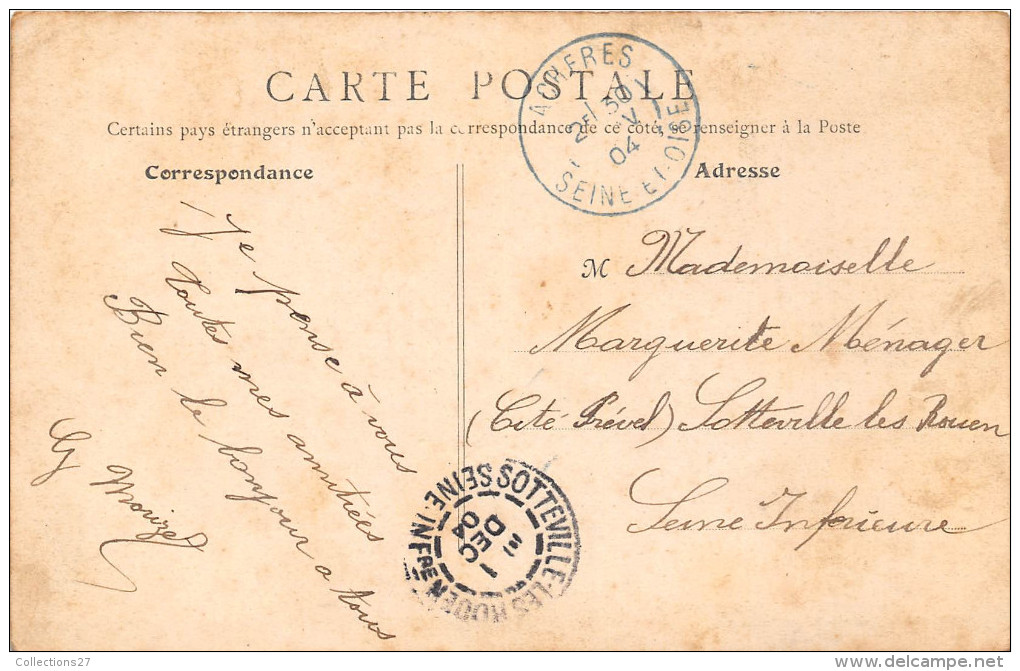 CARTE POSTALE
Certains pays étrangers n'acceptent pas la correspondance de ce côté, se renseigner à la Poste
Correspondance
Je pense à vous
toutes mes amitiés
Bien le bonjour a tous
G Morizet
Adresse
M Mademoiselle
Marguerite Ménager
(Cité Prével) Sotteville les Rouen
Seine Inférieure
ACHERES
30
04
SEINE-ET-OISE
SOTTEVILLE-LES-ROUEN
1
DEC
04
SEINE-INFRE
Collections27
www.delcampe.net